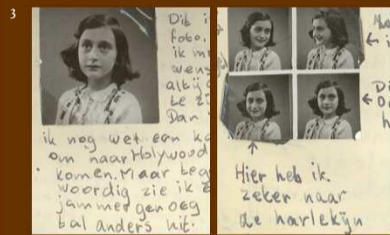 3
Dit i
foto.
ik m
wens
altij
te zi
Dan
ik nog wel een ka
om naar Holywood
komen. Maar teg
woordig zie ik
jammer genoeg
tal anders uit.
Hier heb ik
zeker naar
de harlekijn